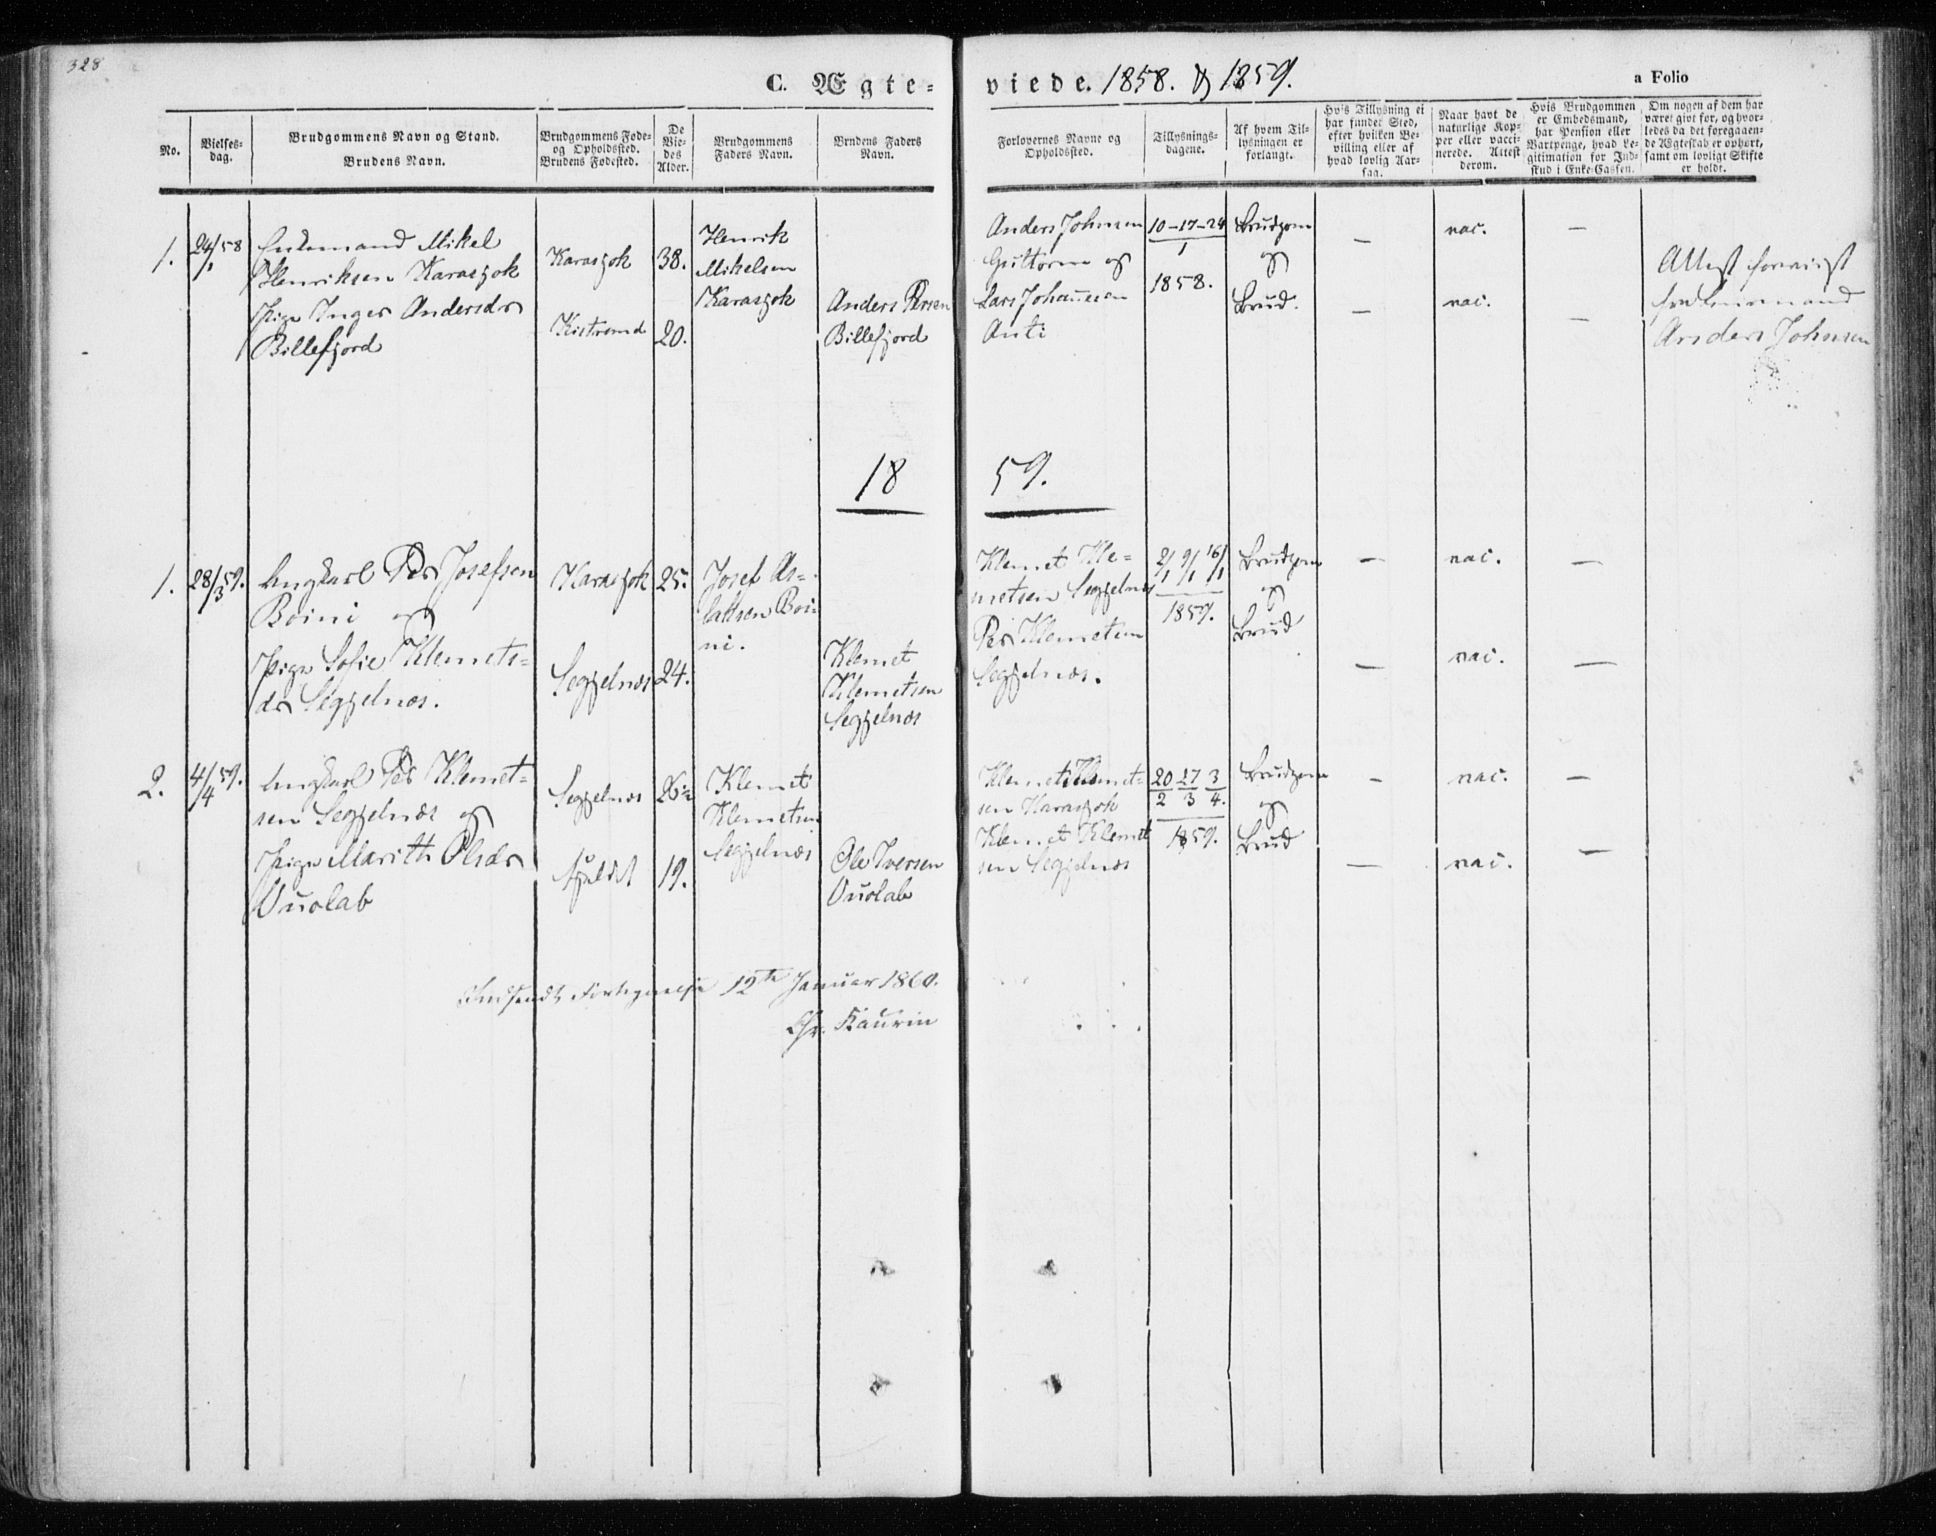 328
C. Ægte-
viede. 1858. & 1859.
a Folio
No.
Vielses-
dag.
Brudgommens Navn og Stand.
Brudens Navn.
Brudgommens Føde-
og Opholdssted.
Brudens Fødested.
De
Vie-
des
Alder.
Brudgommens
Faders Navn.
Brudens Faders
Navn.
Forlovernes Navne og
Opholdssted.
Tillysnings-
dagene.
Af hvem Til-
lysningen er
forlangt.
Hvis Tillysning ei
har fundet Sted,
efter hvilken Be-
villing eller af
hvad lovlig Aar-
sag.
Naar havt de
naturlige Kop-
per eller vacci-
nerede. Attest
derom.
Hvis Brudgommen
er Embedsmand,
har Pension eller
Vartpenge, hvad Le-
gitimation for Ind-
skud i Enke-Cassen.
Om nogen af dem har
været givt før, og hvor-
ledes da det foregaaen-
de Ægteskab er ophørt,
samt om lovligt Skifte
er holdt.
1. 24/1 58
Enkemand Mikel
Henriksen Karasjok
Pige Inger Andersdr
Billefjord
Karasjok
Kistrand
38.
20.
Henrik
Mikelsen
Karasjok
Anders Persen
Billefjord
Anders Johnsen
Guttorm og
Lars Johannesen
Anti
10-17-24
1
1858.
Brudgom
og
Brud.
—
—
vac.
vac.
—
—
Attest foreviist
fra Lensmand
Anders Johnsen
18 59.
1. 28/3 59.
Ungkarl Per Josefsen
Boini og
Pige Sofie Klemets-
dr Seggelnæs.
Karasjok
Seggelnæs
25.
24.
Josef As-
laksen Boi-
ni.
Klemet
Klemetsen
Seggelnæs
Klemet Kle-
metsen Seggelnæs
Per Klemetsen
Seggelnæs.
2/1 9/1 16/1
1859.
Brudgom
og
Brud
—
—
vac.
vac.
—
—
2. 4/4 59.
Ungkarl Per Klemet-
sen Seggelnæs og
Pige Marith Olsdr
Vuolab
Seggelnæs
26½
19.
Klemet
Klemetsen
Seggelnæs
Ole Iversen
Vuolab
Klemet Klemet-
sen Karasjok
Klemet Klemet
sen Seggelnæs
20 27 3
2 3 4.
1859.
Brudgom
og
Brud
—
—
vac.
vac.
—
—
Indsendt Fortegnelse 12te Januar 1860.
Chr. Kaurin